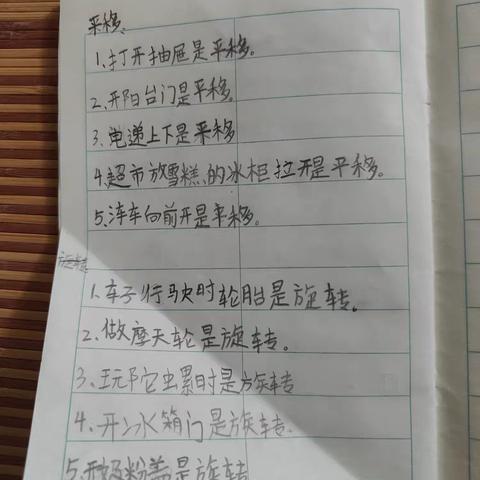 平移、
1、打开抽屉是平移。
2、开阳台门是平移。
3、电递上下是平移
4、超市放雪糕的冰柜拉开是平移。
5、汽车向前开是平移。
旋转
1、车子行驶时轮胎是旋转。
2、做摩天轮是旋转。
3、玩陀螺时是旋转
4、开冰箱门是旋转.
5、开 粉盖是旋转